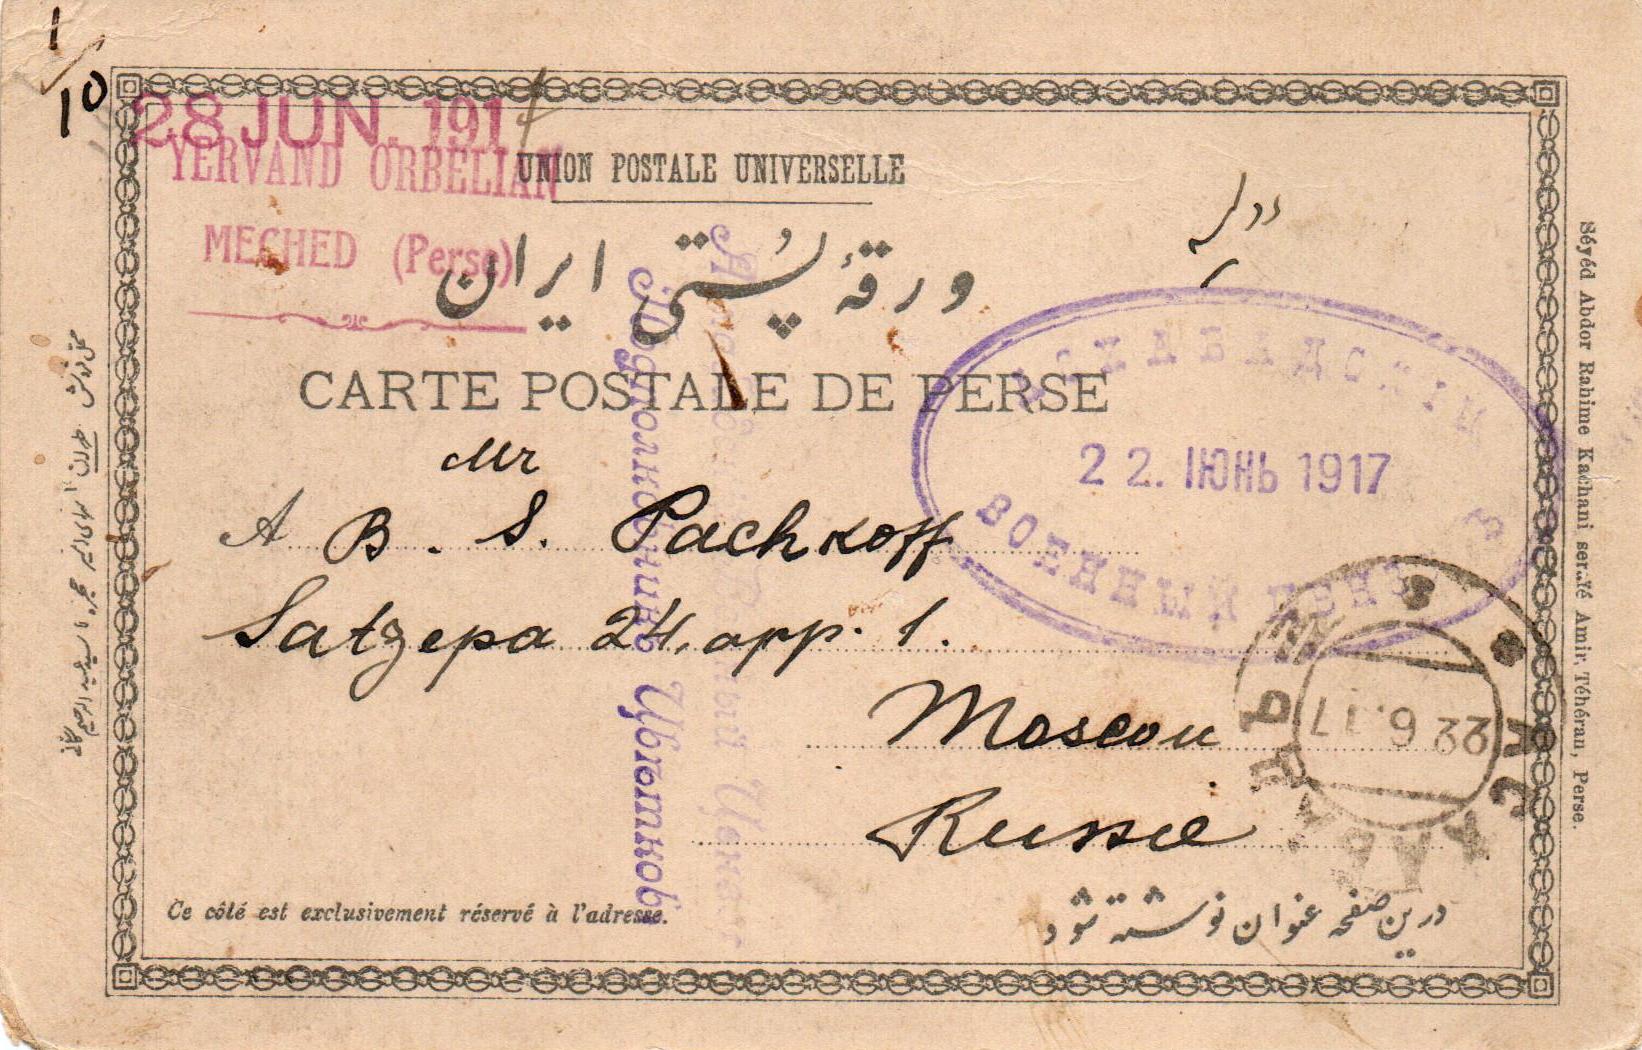 1/10
28 JUN. 1917
YERVAND ORBELIAN
MECHED (Perse)
UNION POSTALE UNIVERSELLE
ورقهٔ پُستی ایران
CARTE POSTALE DE PERSE
22. ІЮНЬ 1917
ВОЕННЫЙ ЦЕНЗ
Mr
A B. S. Pachkoff
Satzepa 24, app. 1.
Moscou
Russie
22 6.17
АСХАБАДЪ
Подполковникъ Цвѣтков
Ce côté est exclusivement réservé à l'adresse.
درین صفحه عنوان نوشته شود
Séyéd Abdor Rahime Kachani seraïé Amir, Téhéran, Perse.